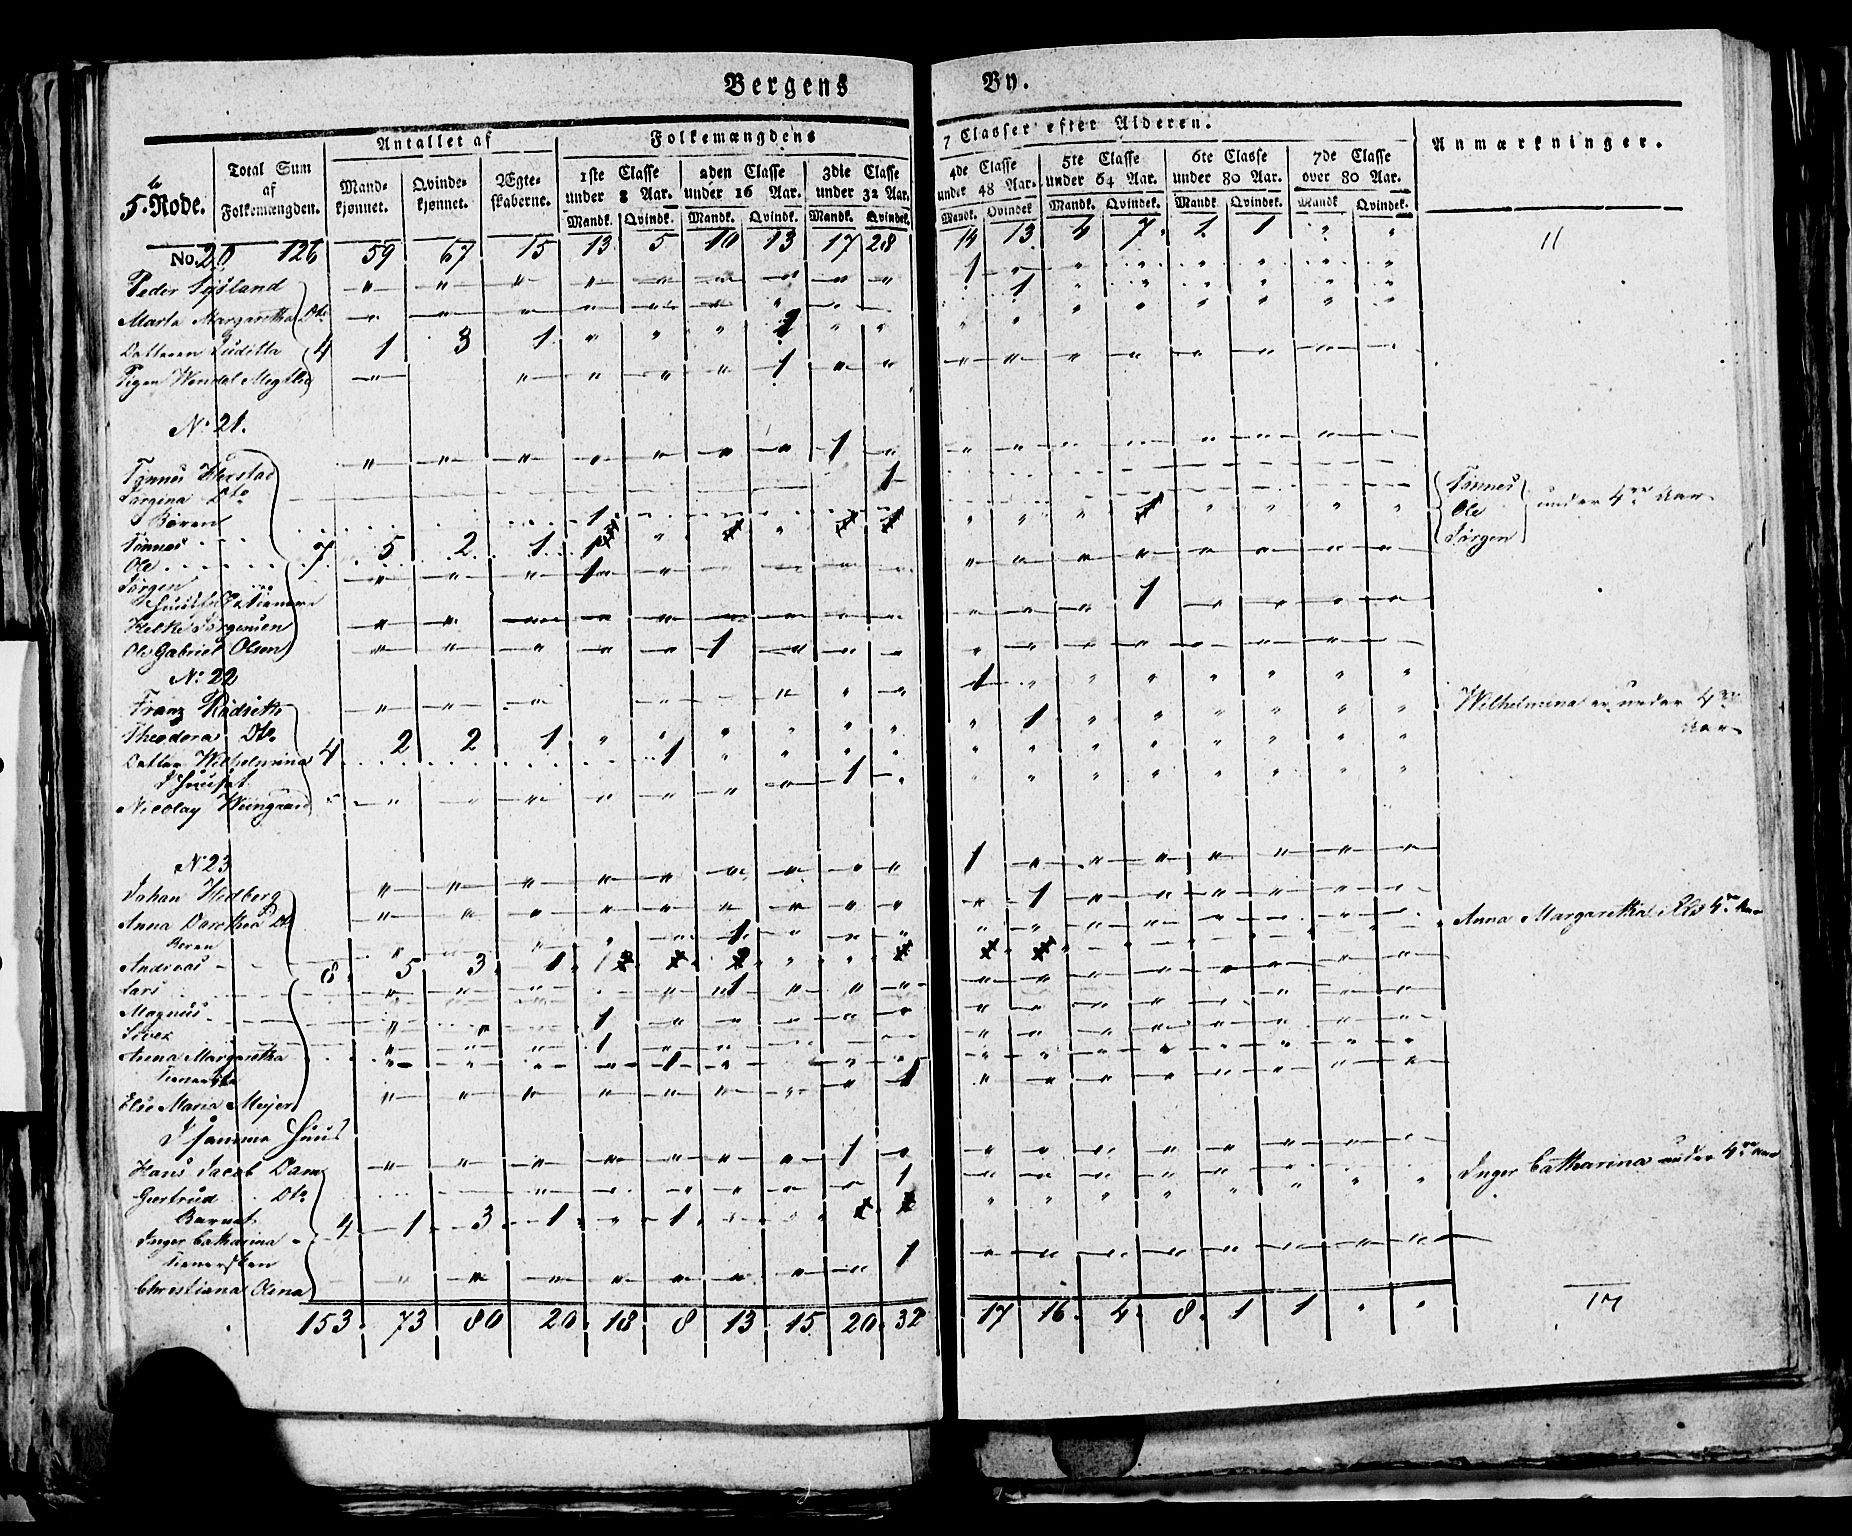 Bergens By.
5te Rode.
Total Sum af Folkemængden.
Antallet af
Mandkjønnet.
Qvindekjønnet.
Ægteskaberne.
Folkemængdens 7 Classer efter Alderen.
1ste Classe under 8 Aar.
2den Classe under 16 Aar.
3die Classe under 32 Aar.
4de Classe under 48 Aar.
5te Classe under 64 Aar.
6te Classe under 80 Aar.
7de Classe over 80 Aar.
Mandk. Qvindk. Mandk. Qvindk. Mandk. Qvindek. Mandk. Qvindek Mandk. Qvindek. Mandk. Qvindek. Mandk Qvindek.
Anmærkninger.
No. 20 126 59 67 15 13 5 10 13 17 28 14 13 4 7 1 1 " " 11
Peder 1
Marta Margaretha Dto 1
Datteren Juditta 4 1 3 1 1
Pigen 1
No. 21.
Tønnes 1
Jørgina Dto 1
Børen
Tønnes 7 5 2 1 1
Ole 1
Jørgen 1
Jørgensen 1
Ole Gabriel Olsen 1
Tønnes Ole Jørgen under 4re Aar
No. 22
Franz 1
Theodora Dto 1
Datter Wilhelmina 4 2 2 1 1
Nicolay 1
Wilhelmina er under 4re Aar
No. 23
Johan Hedberg 1
Anna Dorthea Dto 1
Børen
Andreas 8 5 3 1 1
Lars 1
Magnus 1
Siver 1
Anna Margaretha 1
Else Maria Meyer 1
Anna Margaretha 4re Aar
I samme Huus
Hans Jacob Dam 1
Giertrud Dto 1
Barnet
Inger Catharina 4 1 3 1 1
Tienersken
Christiana Olina 1
Inger Catharina under 4re Aar
153 73 80 20 18 8 13 15 20 32 17 16 4 8 1 1 " " 17